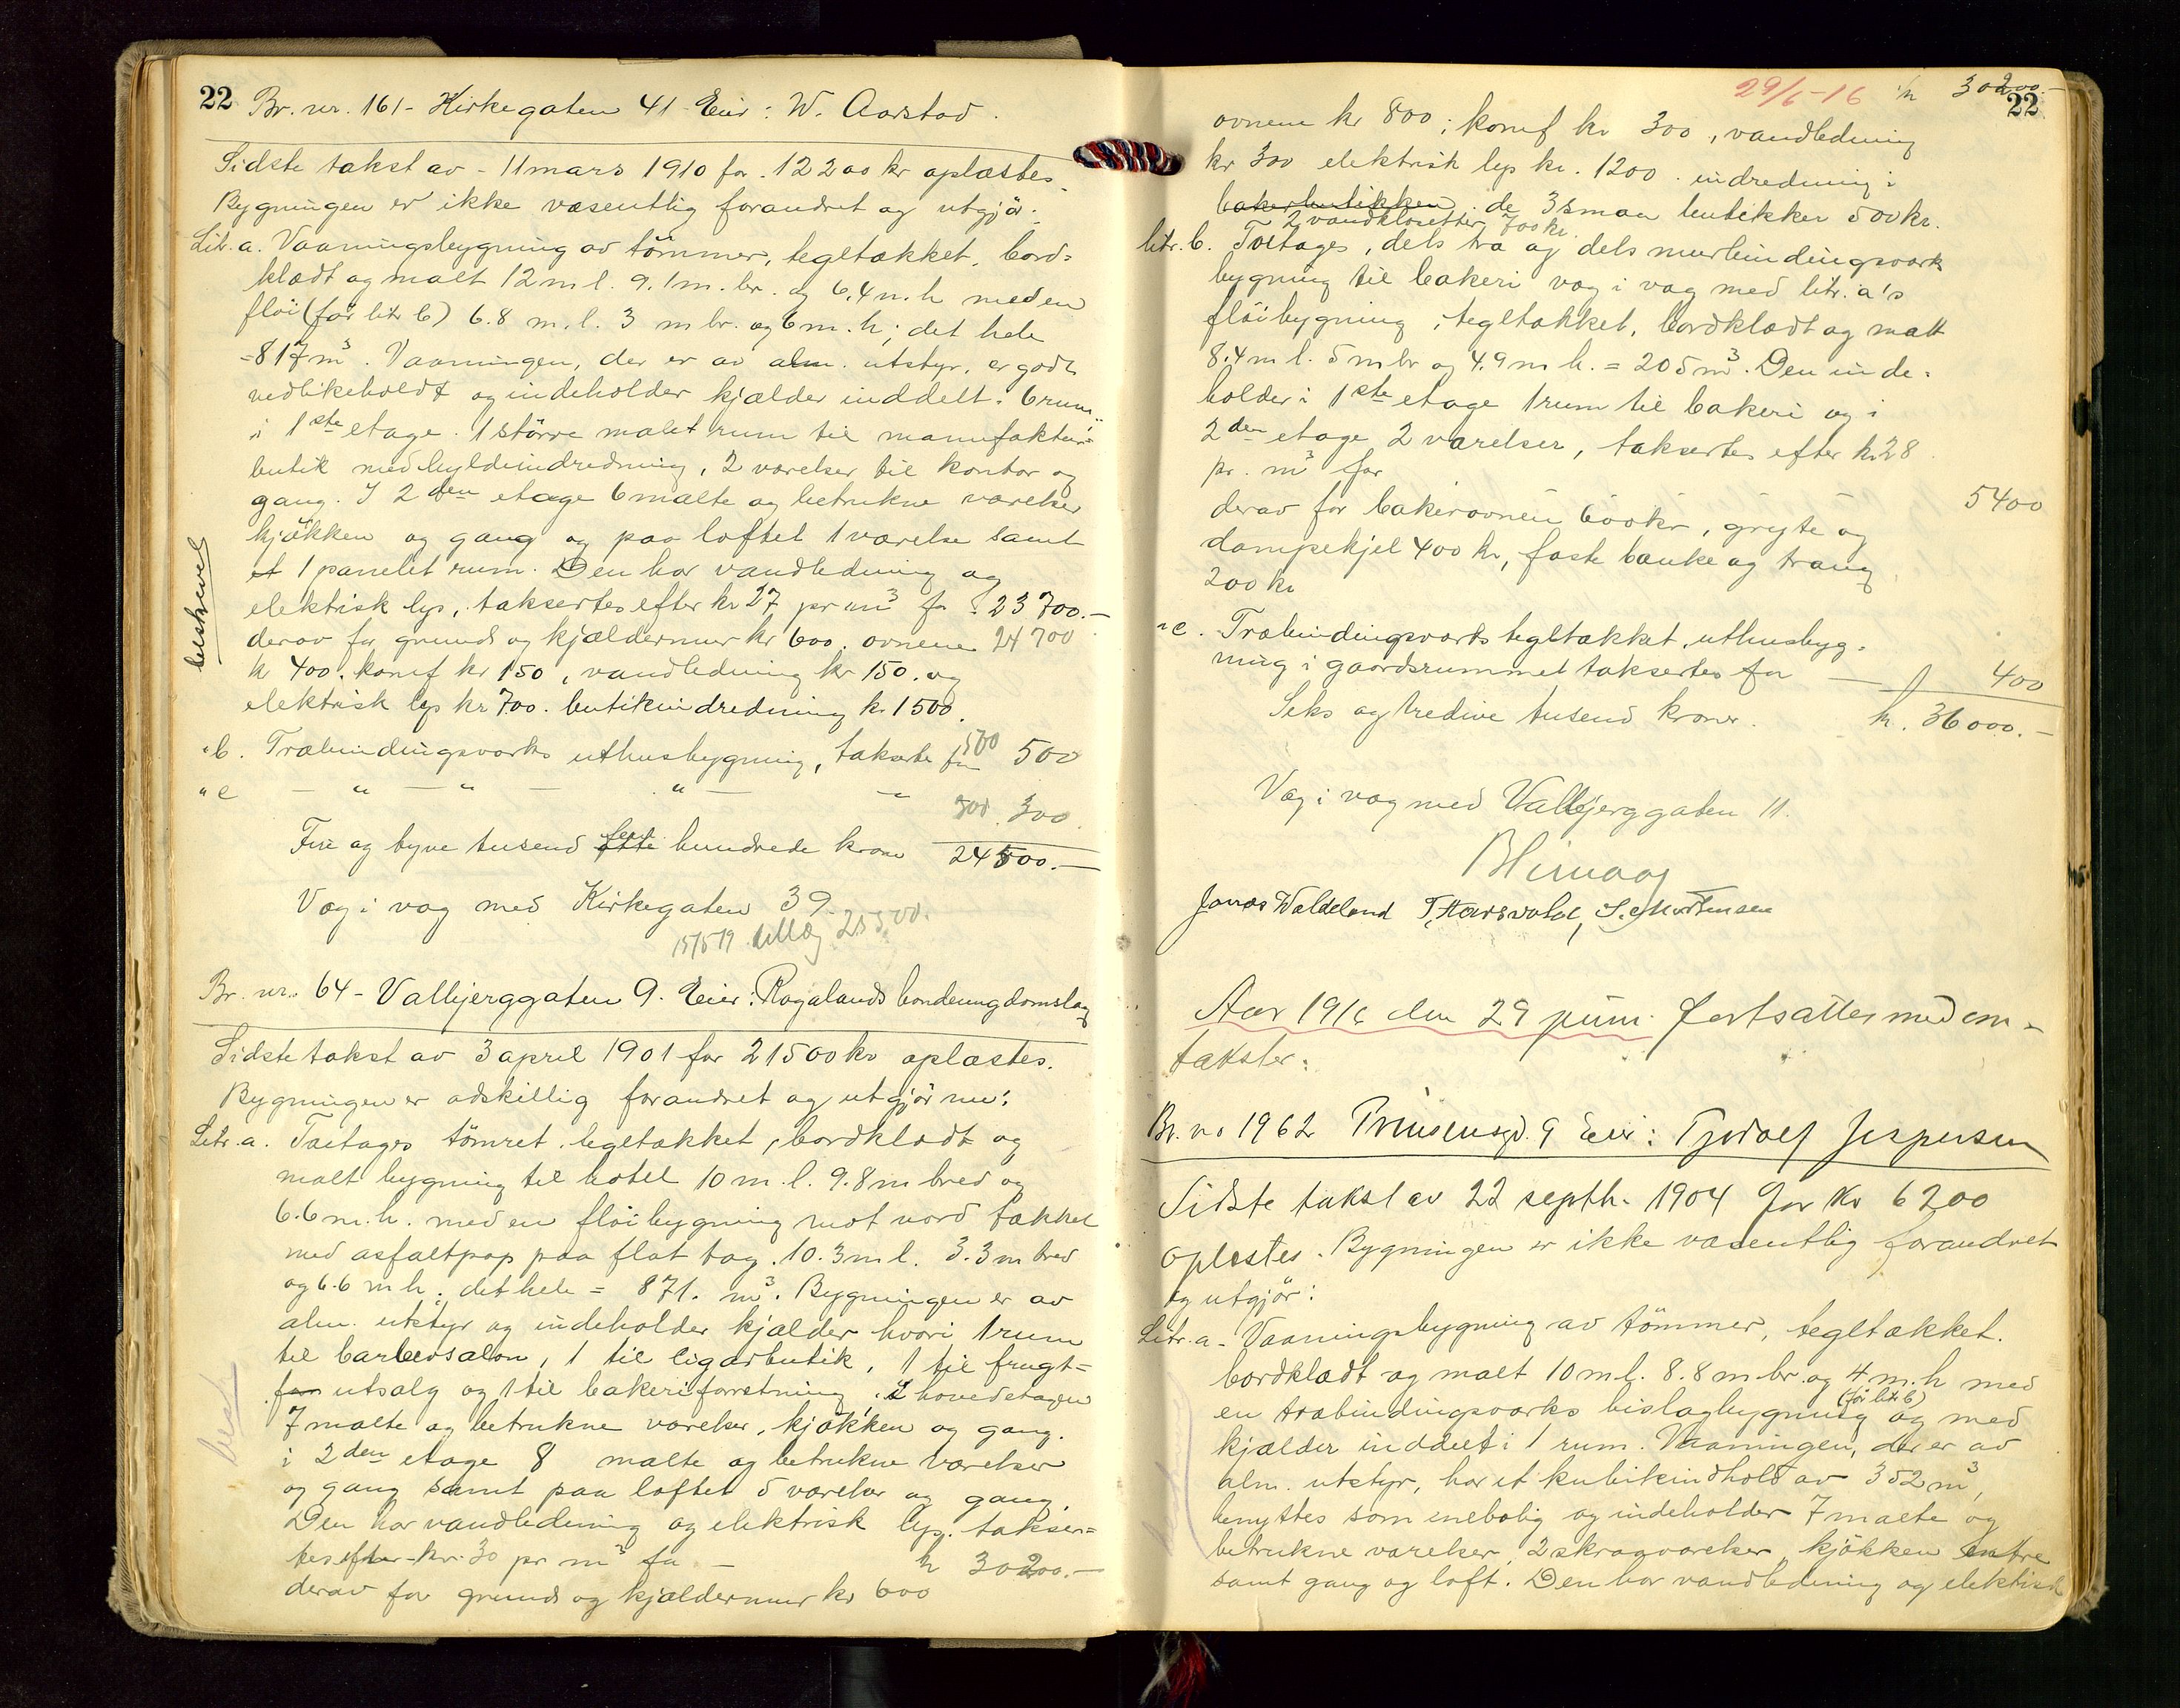 22 Br. nr. 161 - Kirkegaten 41 Eier: W. Aarstad.
Sidste takst av - 11 mars 1910 for 12200 kr oplæstes.
Bygningen er ikke væsentlig forandret og utgjør:
Litr. a. Vaaningsbygning av tömmer, tegltækket, bord-
klædt og malt 12 m l. 9.1 m. br. og 6,4 m. h med en
flöi (för litr b) 6.8 m. l. 3 m br. og 6 m. h; det hele
= 817 m³. Vaaningen, der er av alm. utstyr, er godt
vedlikeholdt og indeholder kjælder inddelt i 6 rum
i 1ste etage 1 större malet rum til manufaktur-
butik med hyldeindredning, 2 værelser til kontor og
gang. I 2den etage 6 malte og betrukne værelser
kjökken og gang og paa loftet 1 værelse samt
et 1 panelet rum. Den har vandledning og
elektrisk lys, taksertes efter kr 27 pr m³ for 23700.-
derav for grund og kjældermur kr 600. ovnene 24700
kr 400. komf kr 150, vandledning kr 150. og
elektrisk lys kr 700. butikindredning kr 1500.
beskrevet
" b. Træbindingsværks uthusbygning, takserte for 500 500
" c — " — " — " — " 300. 300.
Fire og tyve tusend otte fem hundrede kroner 24500.-
Væg i væg med Kirkegaten 39.
15/5 19 tillæg 25500.
Br. nr. 64 - Valbjerggaten 9. Eier: Rogalands bondeungdomslag
Sidste takst av 3 april 1901 for 21500 kr oplæstes.
Bygningen er adskillig forandret og utgjör nu:
Litr. a. Toetages tömret tegltækket, bordklædt og
malt bygning til hotel 10 m. l. 9.8 m bred og
6.6 m. h. med en flöibygning mot nord tækket
med asfaltpap paa flat tag. 10.3 m l. 3.3 m bred
og 6.6 m h; det hele = 871. m³. Bygningen er av
alm. utstyr og indeholder kjælder hvori 1 rum
til barbersalon, 1 til cigarbutik, 1 til frugt-
for utsalg og 1 til bakeriforretning, i hovedetagen
7 malte og betrukne værelser, kjökken og gang.
i 2den etage 8 malte og betrukne værelser
og gang samt paa loftet 5 værelser og gang.
Den har vandledning og elektrisk lys. takser-
tes efter kr. 30 pr m³ for — kr 30200.-
derav for grund og kjældermur kr 600
besk
29/6-16 kr 30200.-
22
ovnene kr 800; komf kr 300, vandledning
kr 300 elektrisk lys kr. 1200. indredning i
bakerbutikken. de 3 smaa butikker 500 kr.
2 vandklosetter 700 kr.
litr. b. Toetages, dels træ og dels murbindingsværks
bygning til bakeri væg i væg med litr. a's
flöibygning, tegltækket, bordklædt og malt
8.4 m l. 5 m br og 4.9 m h. = 205 m³. Den inde-
holder i 1ste etage 1 rum til bakeri og i
2den etage 2 værelser, taksertes efter kr 28
pr. m³ for 5400
derav for bakerovnen 600 kr, gryte og
dampekjel 400 kr, faste bænke og traug
200 kr
" c. Træbindingsværks tegltækket uthusbyg-
ning i gaardsrummet taksertes for — 400
Seks og tredive tusend kroner. kr. 36000.-
Væg i væg med Valbjerggaten 11.
Jonas Waldeland T. Haarsvold, S. Mortensen
Aar 1916 den 29 juni fortsattes med om-
takster:
Br. no 1962 Prinsensgd. 9 Eier: Tjodolf Jespersen
Sidste takst av 22 septb. 1904 for Kr 6200
oplæstes. Bygningen er ikke væsentlig forandret
og utgjör:
Litr. a. Vaaningsbygning av tömmer, tegltækket.
bordklædt og malt 10 m l. 8.8 m br. og 4 m. h med
en træbindingsværks bislagbygning (för litr b) og med
kjælder inddelt i 1 rum. Vaaningen, der er av
alm. utstyr, har et kubikindhold av 352 m³,
benyttes som enebolig og indeholder 7 malte og
betrukne værelser, 2 skraaværelser kjökken entre
samt gang og loft. Den har vandledning og elektrisk